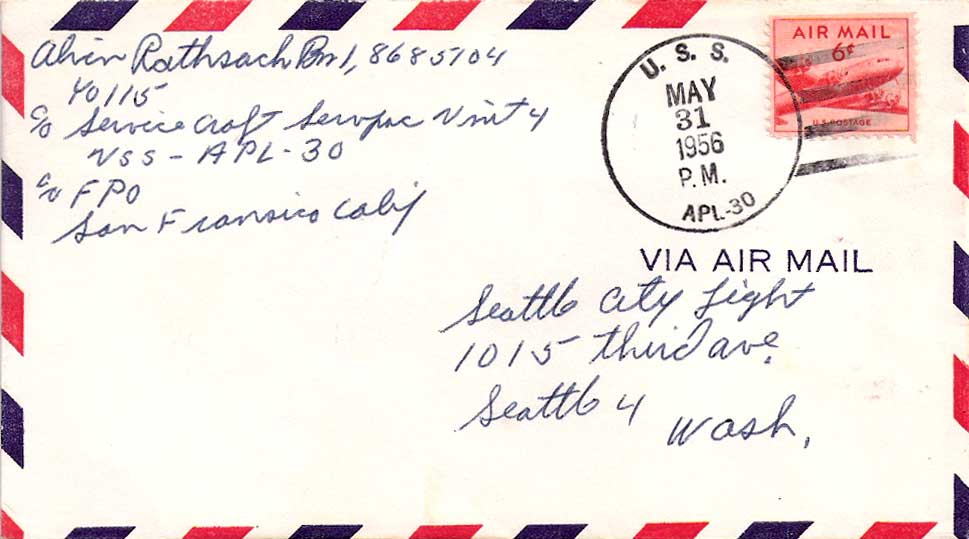 Alvin Rathsach Bm1, 8685704
YO115
c/o Service Craft Servpac Unit 4
USS - APL-30
c/o FPO
San Fransico Calif
U. S. S.
MAY
31
1956
P. M.
APL-30
AIR MAIL
6¢
U.S. POSTAGE
VIA AIR MAIL
Seattle City Light
1015 third ave.
Seattle 4
Wash,